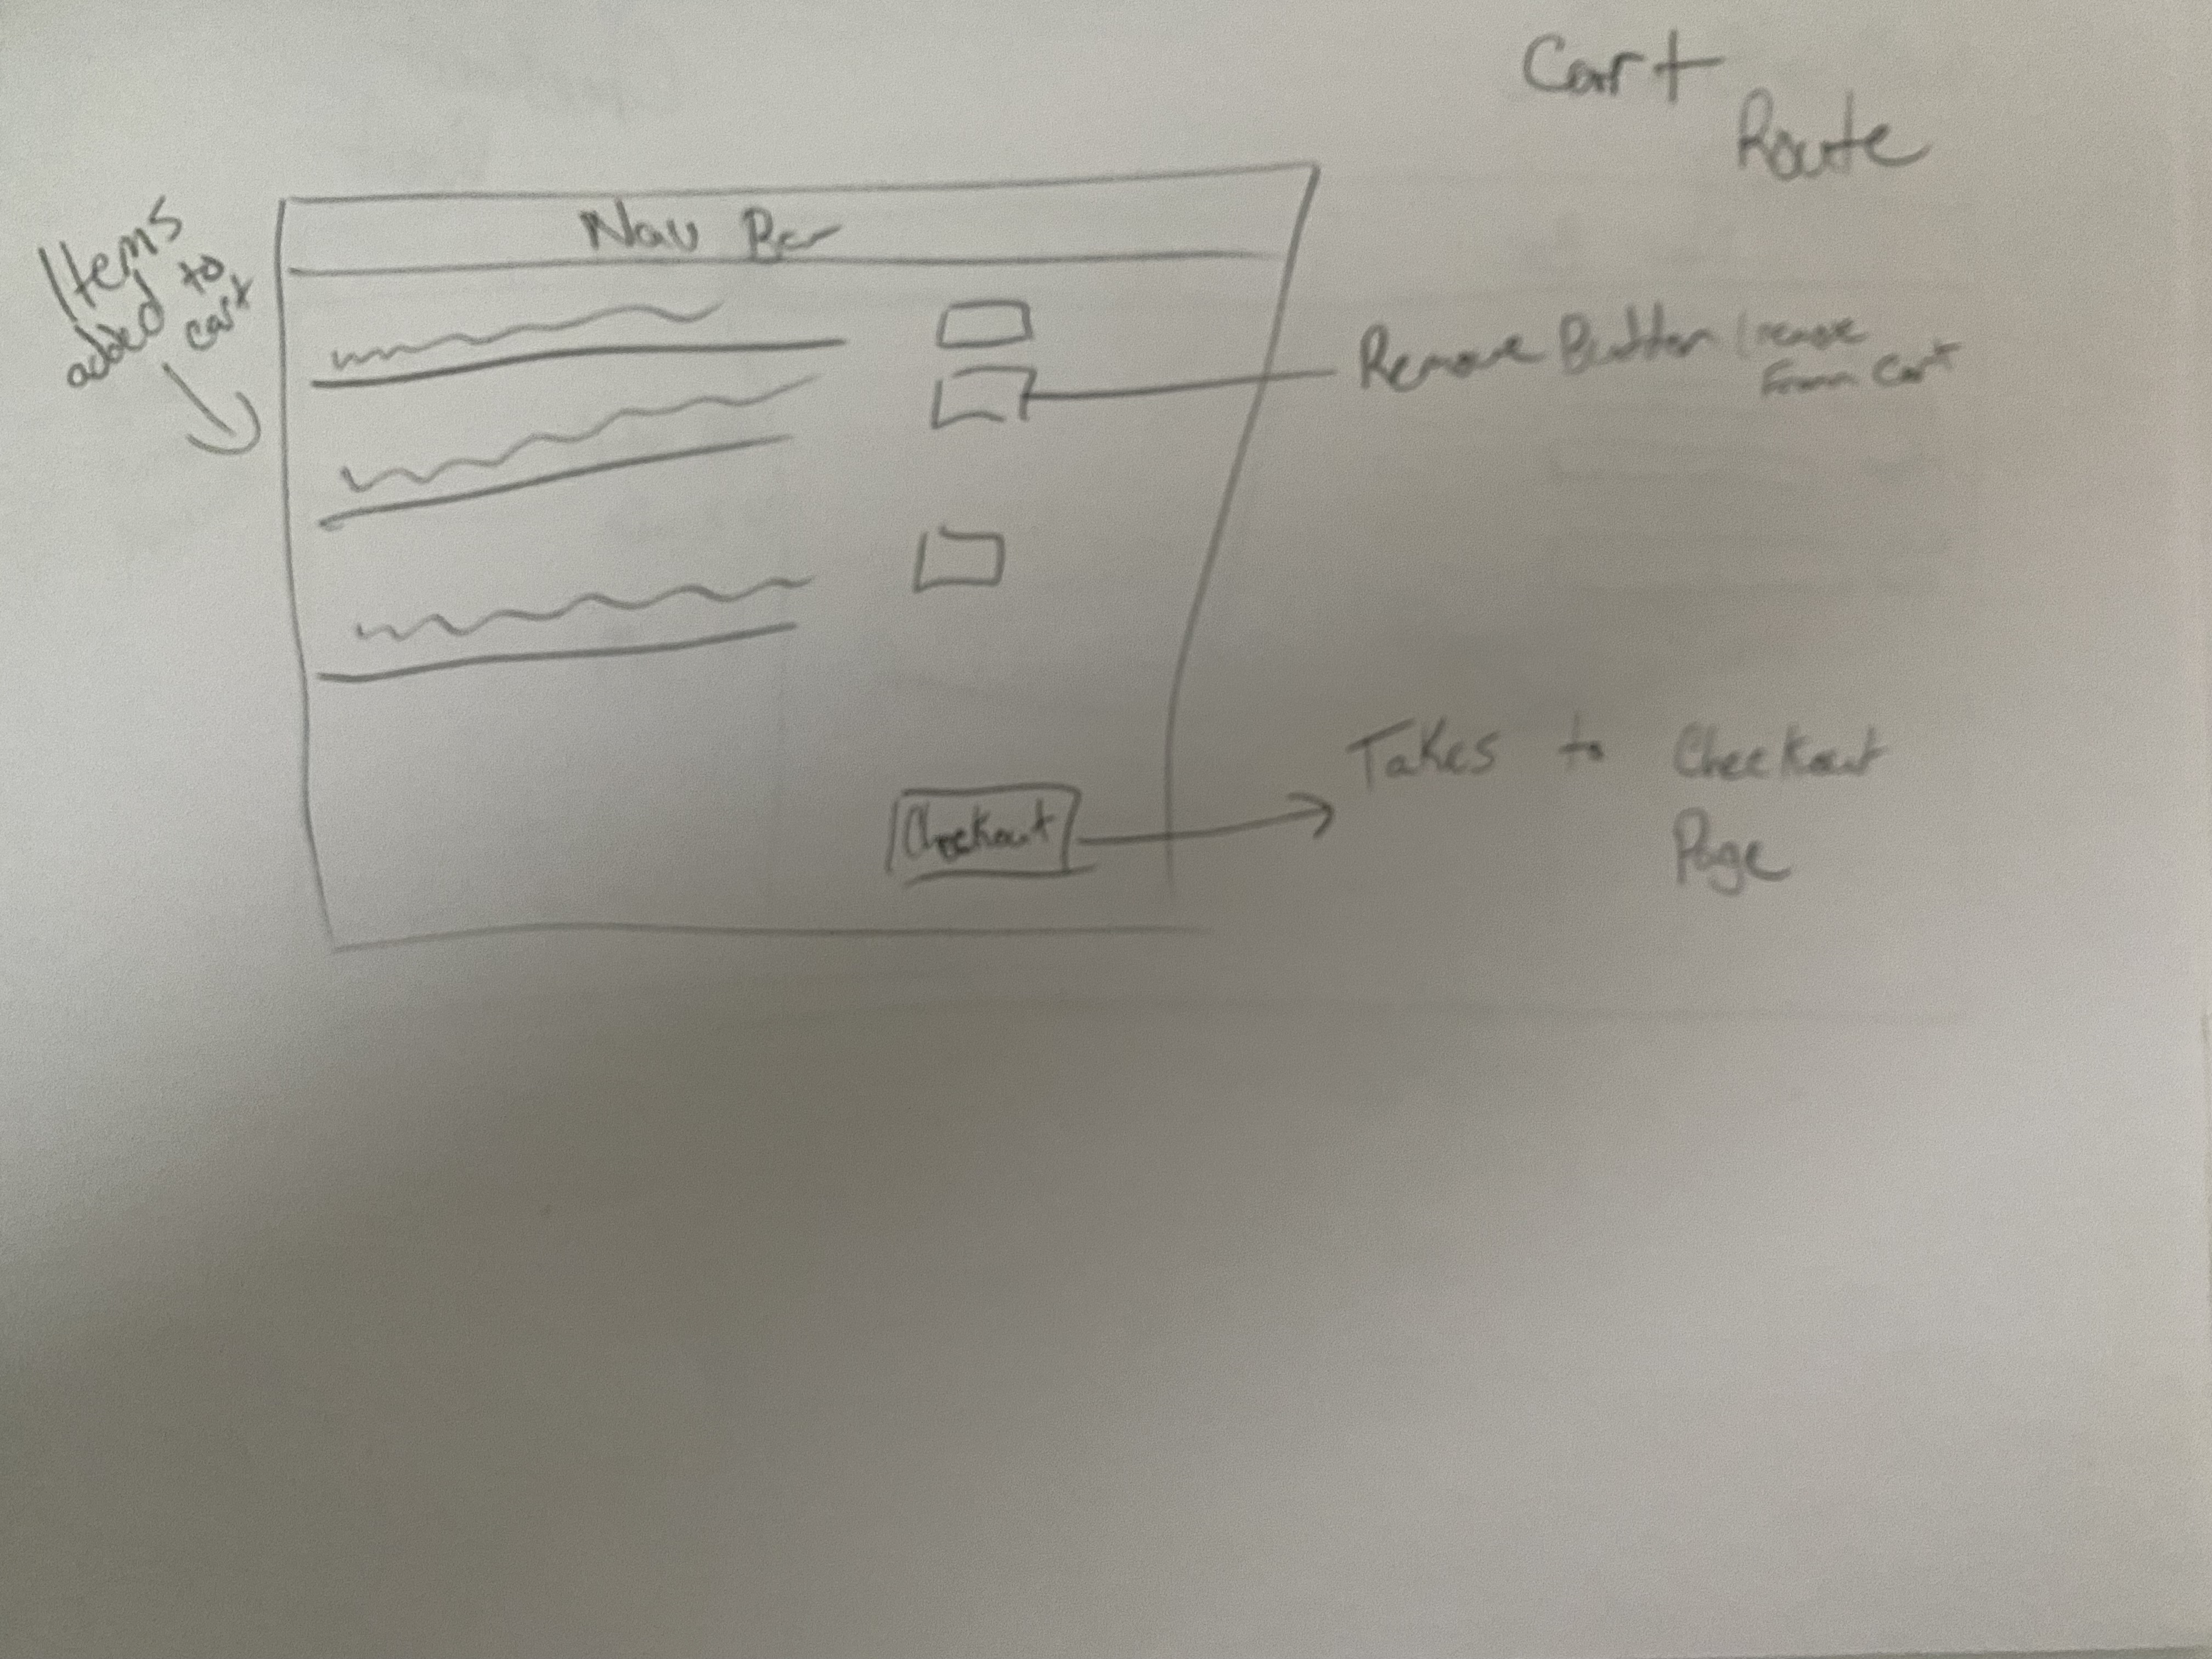 Cart
Route
Items
added to
cart
Nav Bar
Remove Button / remove
From Cart
Takes to Checkout
Page
Checkout